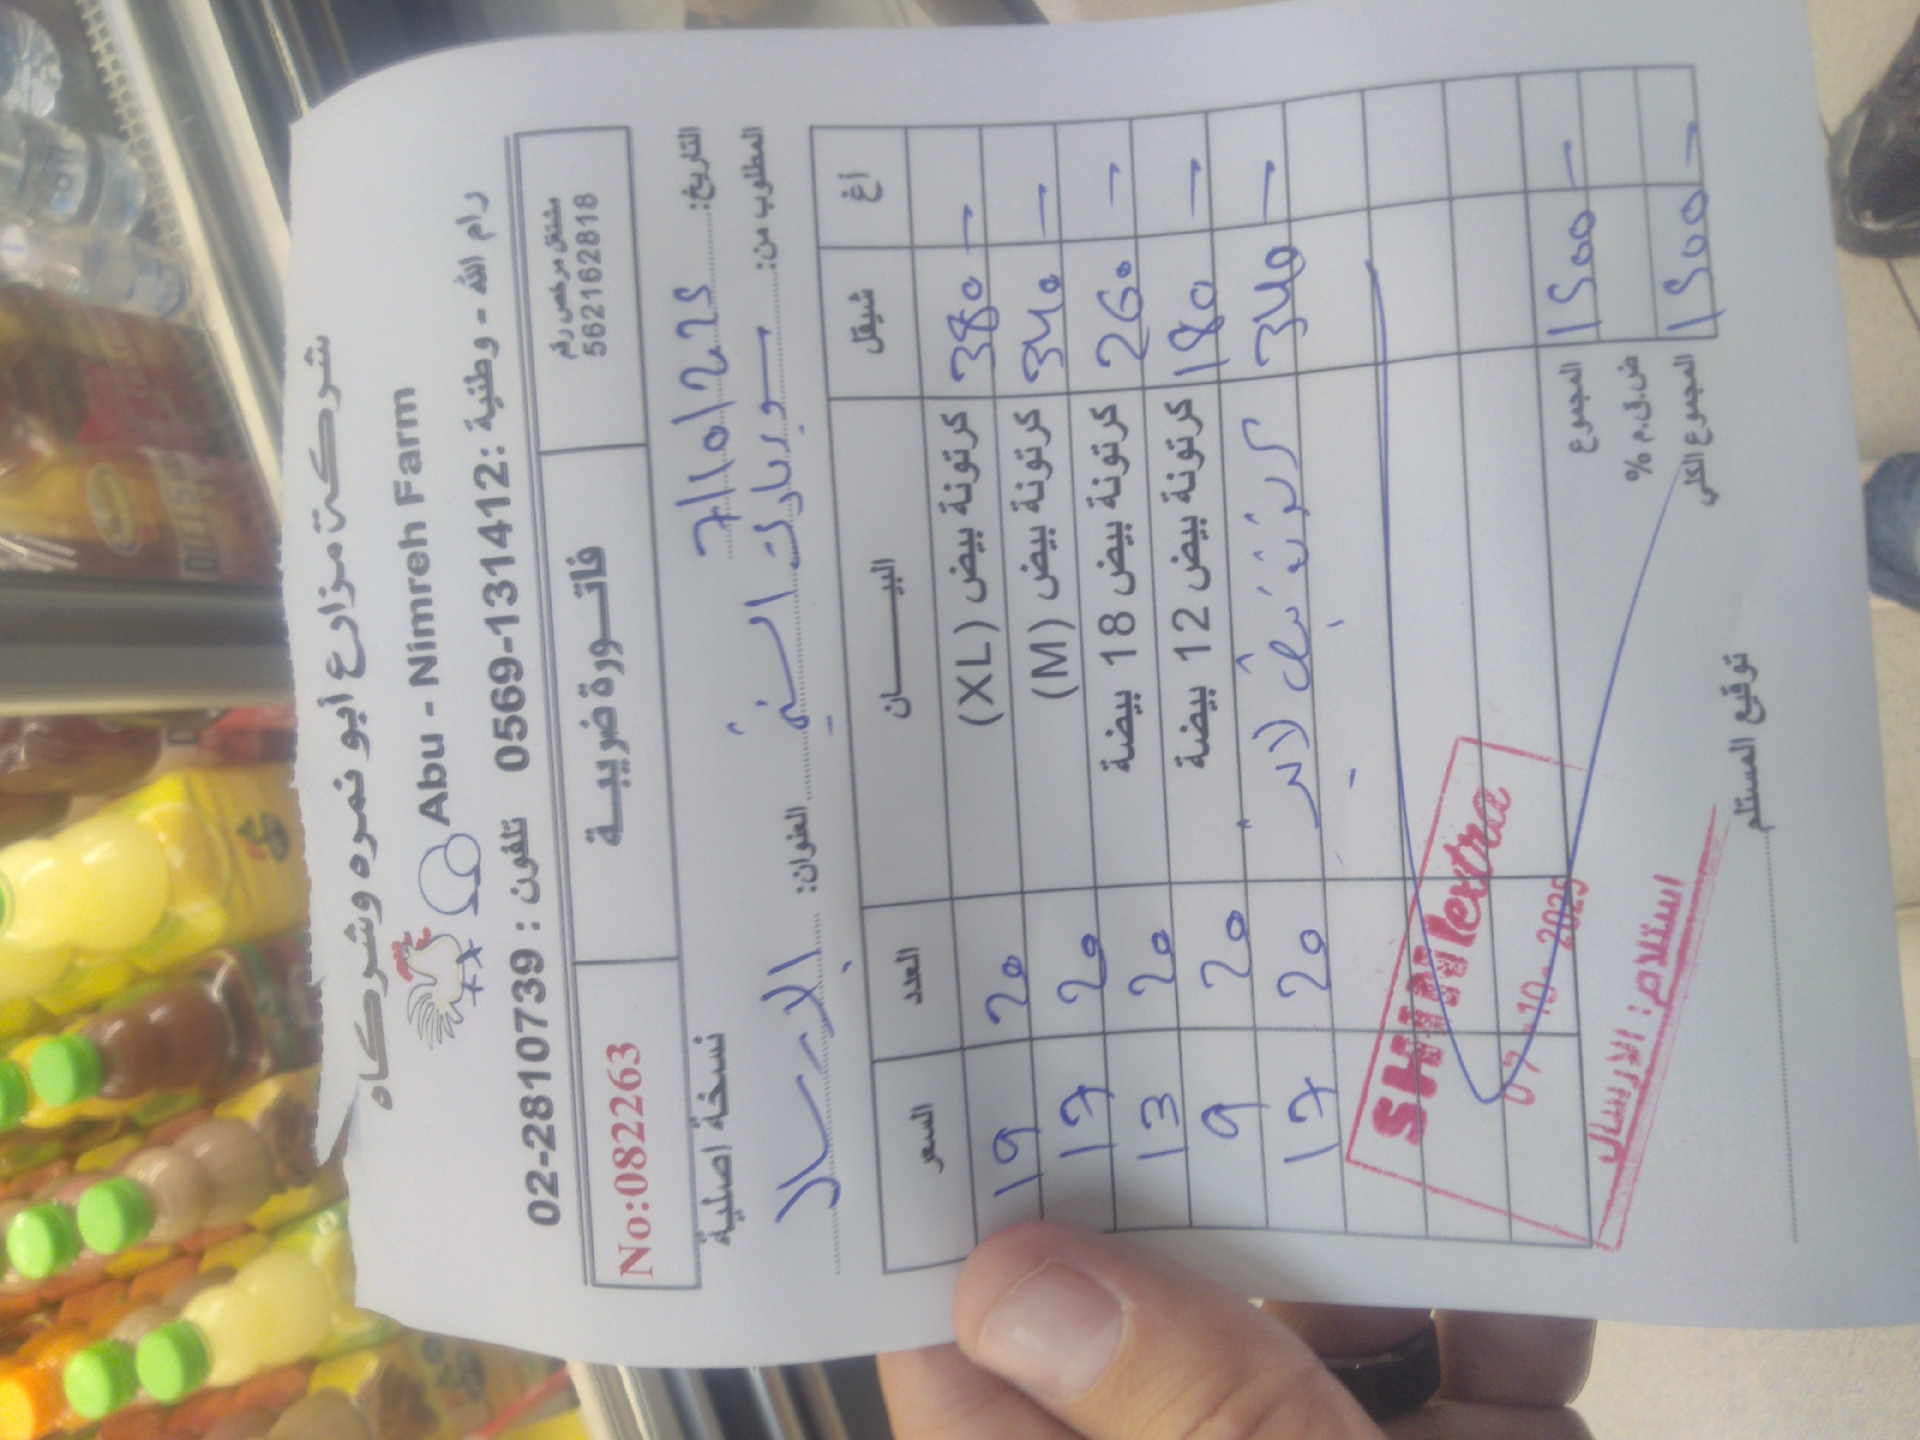 شركة مزارع أبو نمره وشركاه
Abu - Nimreh Farm
رام الله - وطنية : 0569-131412 تلفون : 02-2810739
مشتغل مرخص رقم
562162818
فاتورة ضريبية
No:082263
التاريخ: 7/10/225
نسخة اصلية
المطلوب من: سوبرمارك السنيه العنوان: الارسال
أغ شيقل البيـــــان العدد السعر
- 380 كرتونة بيض (XL) 20 19
- 340 كرتونة بيض (M) 20 17
- 260 كرتونة بيض 18 بيضة 20 13
- 180 كرتونة بيض 12 بيضة 20 9
- 340 20 17
المجموع 1500 -
ض.ق.م %
المجموع الكلي 1500 -
SHINIextra
07-10-2025
استلام: الارسال
توقيع المستلم